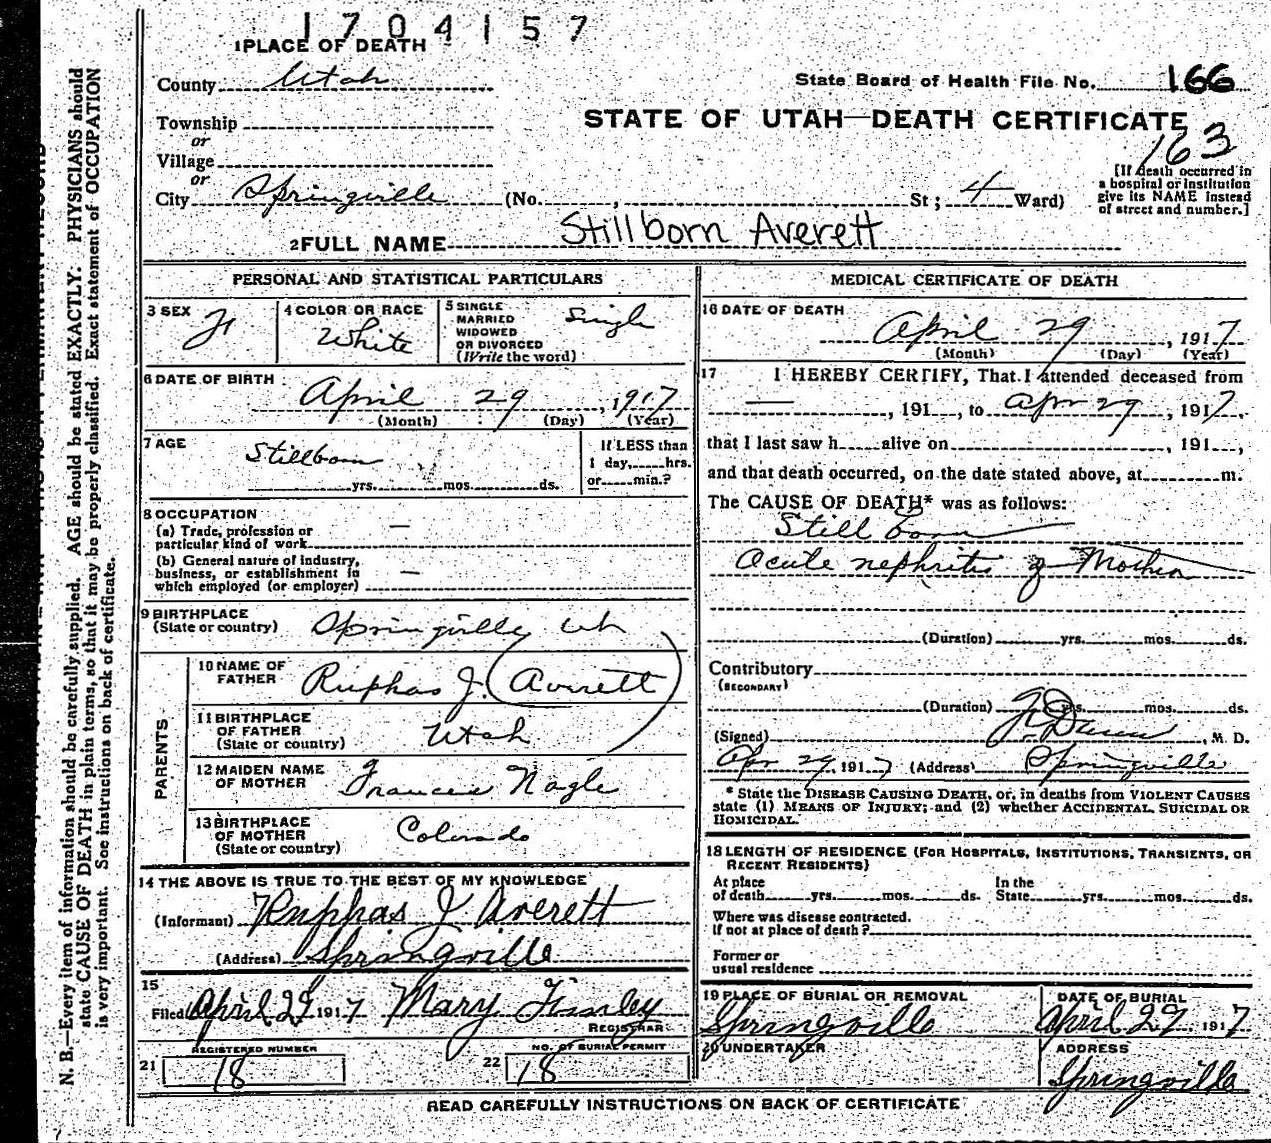 1704157
1 PLACE OF DEATH
County Utah
State Board of Health File No. 166
Township
or
STATE OF UTAH—DEATH CERTIFICATE
163
Village
or
City Springville (No. , St ; 4 Ward)
[If death occurred in
a hospital or institution
give its NAME instead
of street and number.]
2 FULL NAME Stillborn Averett
PERSONAL AND STATISTICAL PARTICULARS
3 SEX F
4 COLOR OR RACE
White
5 SINGLE
MARRIED
WIDOWED
OR DIVORCED
(Write the word)
Single
6 DATE OF BIRTH
April 29, 1917
(Month) (Day) (Year)
7 AGE
Stillborn
yrs. mos. ds.
If LESS than
1 day, hrs.
or min.?
8 OCCUPATION
(a) Trade, profession or
particular kind of work —
(b) General nature of industry,
business, or establishment in
which employed (or employer) —
9 BIRTHPLACE
(State or country) Springville Ut
PARENTS
10 NAME OF
FATHER Ruphas J. (Averett)
11 BIRTHPLACE
OF FATHER
(State or country) Utah
12 MAIDEN NAME
OF MOTHER Frances Nagle
13 BIRTHPLACE
OF MOTHER
(State or country) Colorado
14 THE ABOVE IS TRUE TO THE BEST OF MY KNOWLEDGE
(Informant) Ruphas J Averett
(Address) Springville
15
Filed April 29 1917 Mary Finley
REGISTRAR
REGISTERED NUMBER
21 18
NO. OF BURIAL PERMIT
22 18
MEDICAL CERTIFICATE OF DEATH
16 DATE OF DEATH
April 29, 1917
(Month) (Day) (Year)
17 I HEREBY CERTIFY, That I attended deceased from
—, 191 , to Apr 29, 1917,
that I last saw h alive on , 191 ,
and that death occurred, on the date stated above, at m.
The CAUSE OF DEATH* was as follows:
Still born
Acute nephritis of Mother
(Duration) yrs. mos. ds.
Contributory
(SECONDARY)
(Duration) yrs. mos. ds.
(Signed) , M. D.
Apr 29 1917 (Address) Springville
* State the DISEASE CAUSING DEATH, or, in deaths from VIOLENT CAUSES
state (1) MEANS OF INJURY; and (2) whether ACCIDENTAL, SUICIDAL OR
HOMICIDAL.
18 LENGTH OF RESIDENCE (FOR HOSPITALS, INSTITUTIONS, TRANSIENTS, OR
RECENT RESIDENTS)
At place
of death yrs. mos. ds.
In the
State yrs. mos. ds.
Where was disease contracted.
if not at place of death?
Former or
usual residence
19 PLACE OF BURIAL OR REMOVAL
Springville
DATE OF BURIAL
April 29, 1917
20 UNDERTAKER
ADDRESS
Springville
READ CAREFULLY INSTRUCTIONS ON BACK OF CERTIFICATE
N. B.—Every item of information should be carefully supplied. AGE should be stated EXACTLY. PHYSICIANS should
state CAUSE OF DEATH in plain terms, so that it may be properly classified. Exact statement of OCCUPATION
is very important. See instructions on back of certificate.